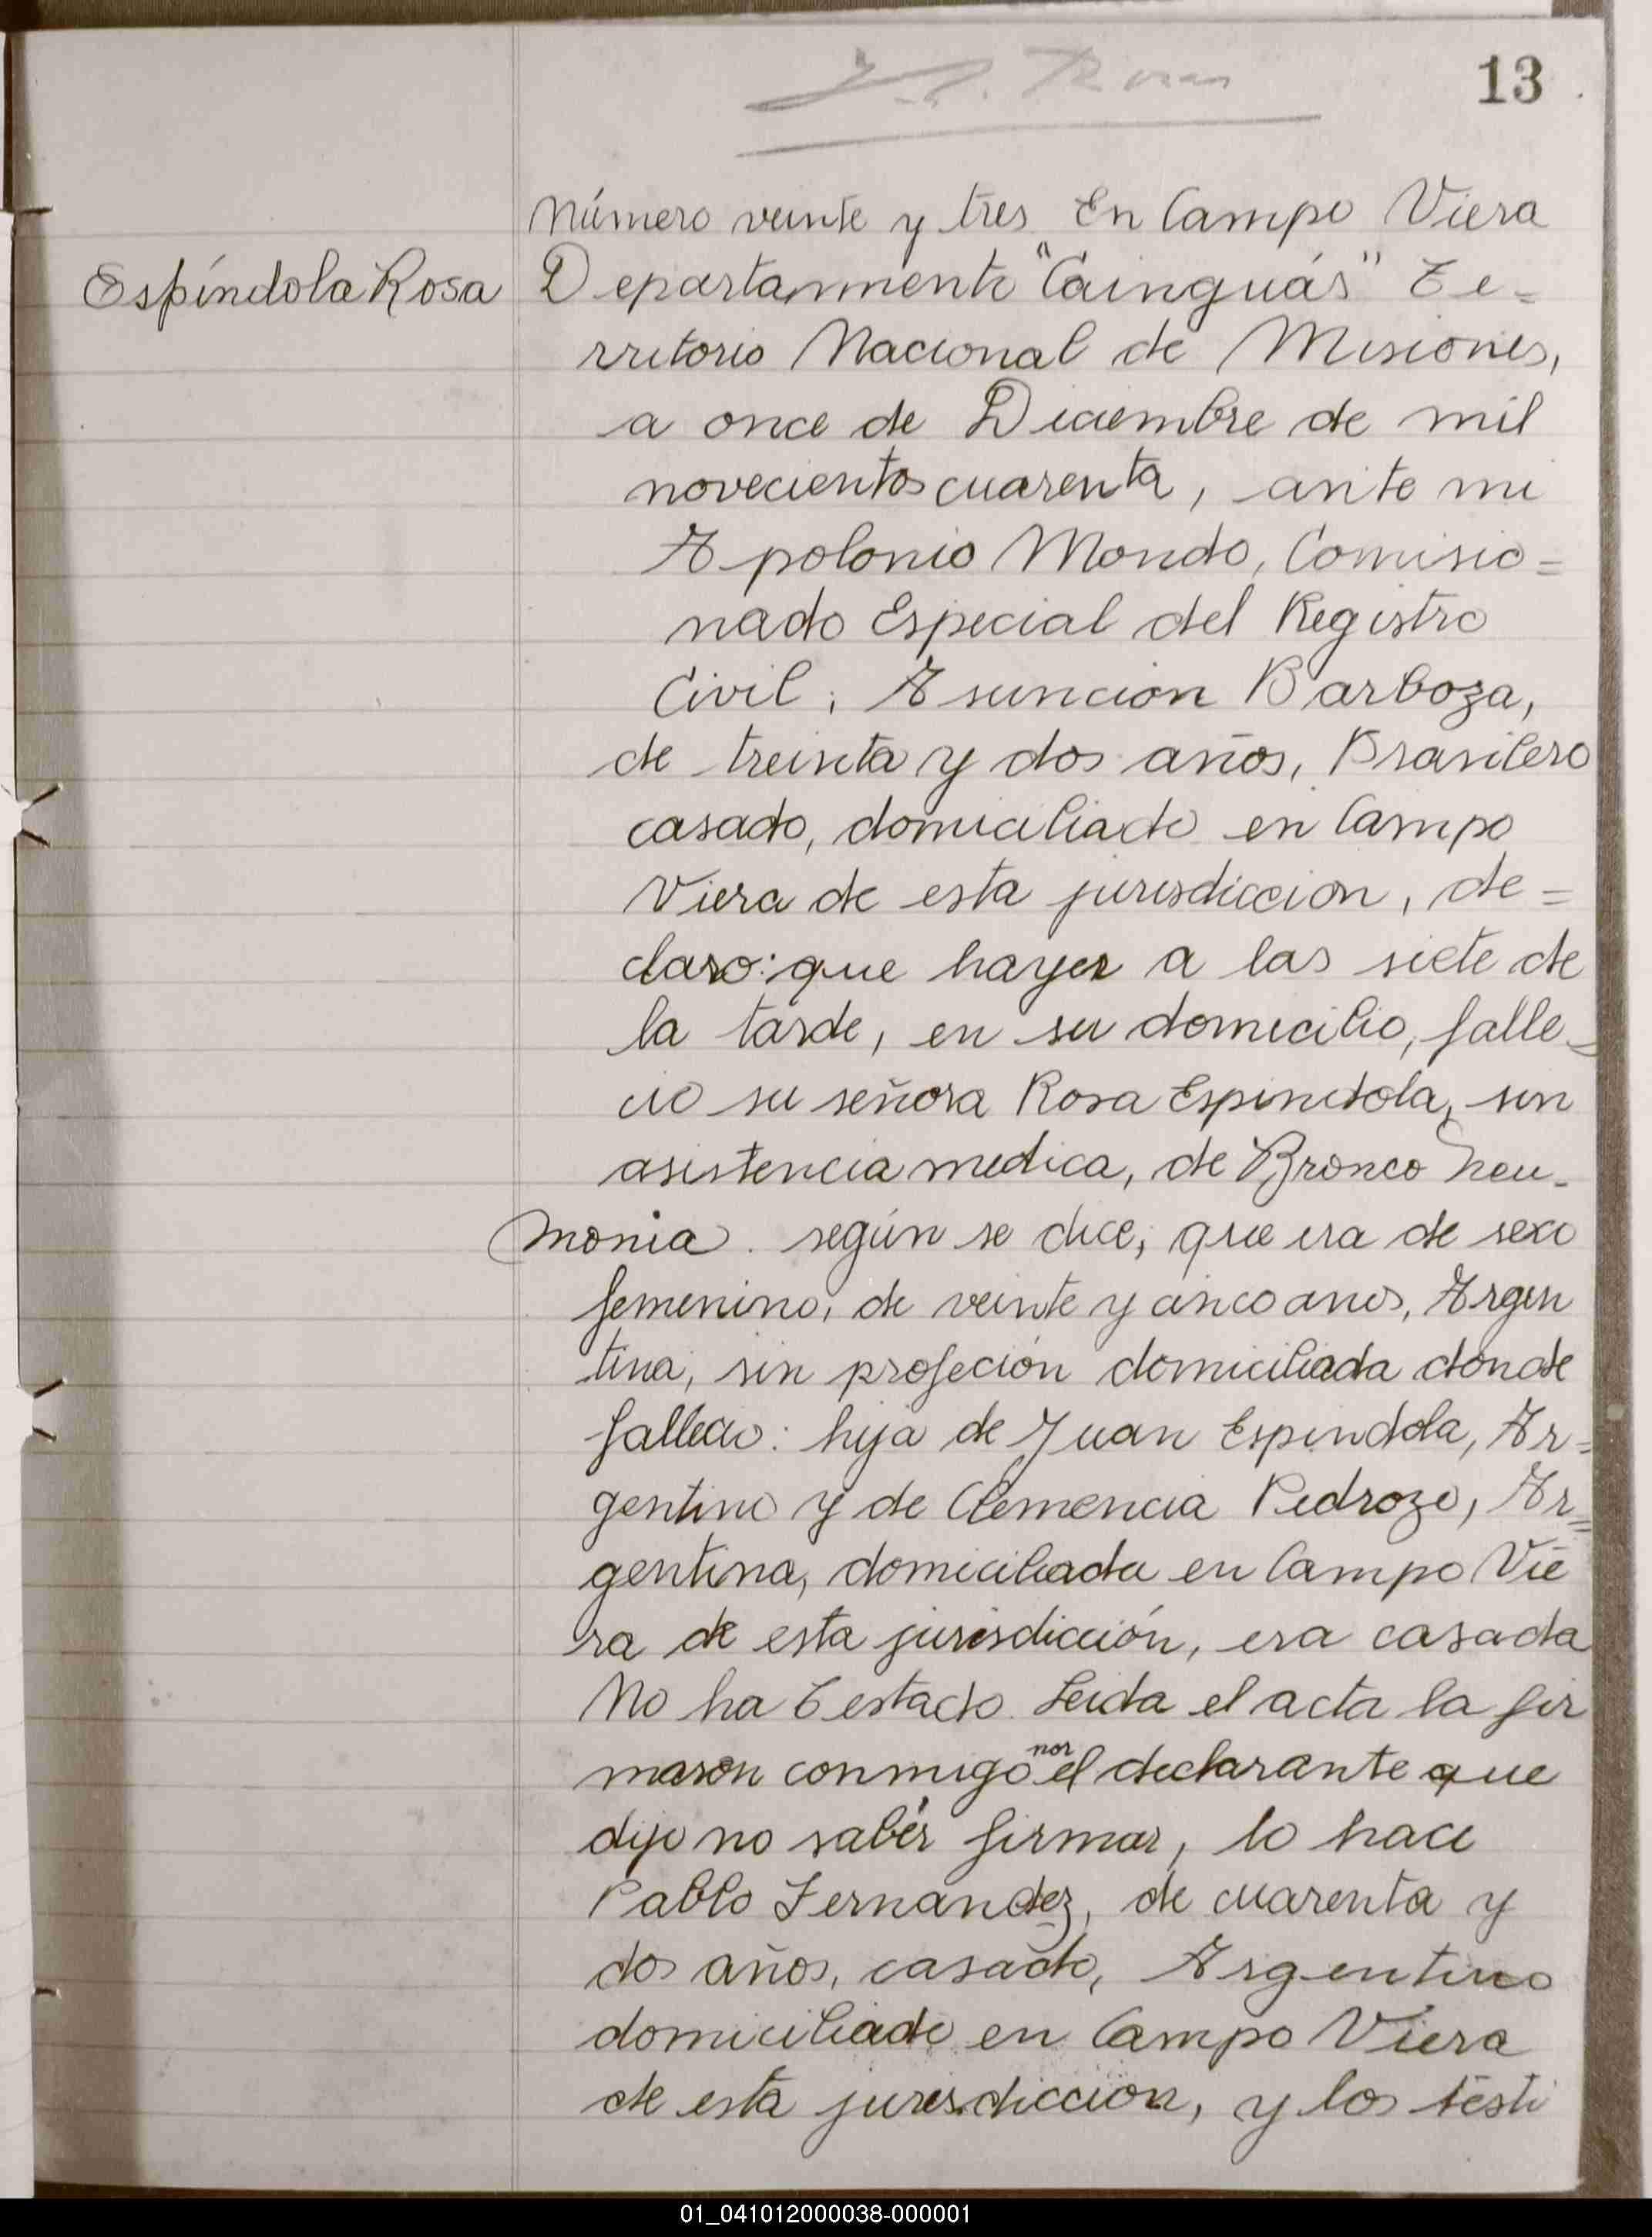 13
Número veinte y tres En Campo Viera
Espíndola Rosa
Departanmento "Cainguás" Te=
rritorio Nacional de Misiones,
a once de Diciembre de mil
novecientos cuarenta, ante mi
Apolonio Mondo, Comisio=
nado Especial del Registro
Civil; Asuncion Barboza,
de treinta y dos años, Brasilero
casado, domiciliado en Campo
Viera de esta jurisdiccion, de=
claro: que hayer a las siete de
la tarde, en su domicilio, falle-
cio su señora Rosa Espindola, sin
asistencia medica, de Bronco neu-
monia. según se dice; que era de sexo
femenino, de veinte y cinco anos, Argen
tina, sin profeción domiciliada donde
fallecio: hija de Juan Espindola, Ar=
gentino y de Clemencia Pedrozo, Ar=
gentina, domiciliada en Campo Vie
ra de esta jurisdicción, era casada
No ha testado. Leida el acta la fir
maron conmigo por el declarante que
dijo no sabér firmar, lo hace
Pablo Fernandez, de cuarenta y
dos años, casado, Argentino
domiciliado en Campo Viera
de esta jurisdiccion, y los testi
01_041012000038-000001